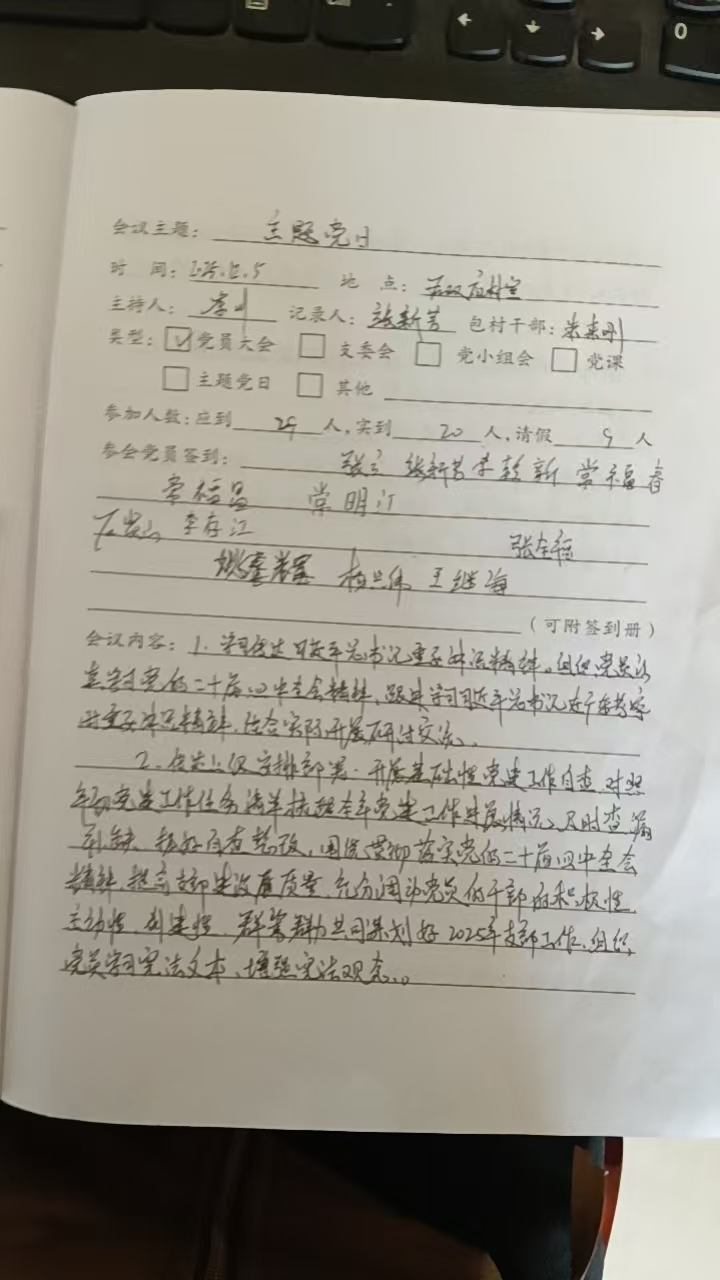 会议主题： 主题党日
时 间： 12.5 地 点：
主持人： 李 记录人： 张新芳 包村干部：
类型： ☑ 党员大会 □ 支委会 □ 党小组会 □ 党课
□ 主题党日 □ 其他
参加人数：应到 29 人，实到 20 人，请假 9 人
参会党员签到： 张新芳 新 常福春
常福昌 常明江
李存江 张全德
杨卫伟 王继海
（可附签到册）
会议内容：1. 学习传达习近平总书记重要讲话精神。组织党员认
真学习党的二十届四中全会精神，跟进学习习近平总书记近
重要讲话精神，结合实际开展研讨交流。
2. 传达上级安排部署，开展基础性党建工作自查，对照
年初党建工作任务清单梳理本年党建工作进展情况，及时查漏
补缺，抓好自查整改，围绕贯彻落实党的二十届四中全会
精神，提高支部建设质量，充分调动党员干部的积极性
主动性、创造性，群策群力共同谋划好2025年支部工作，组织
党员学习宪法文本，增强宪法观念。